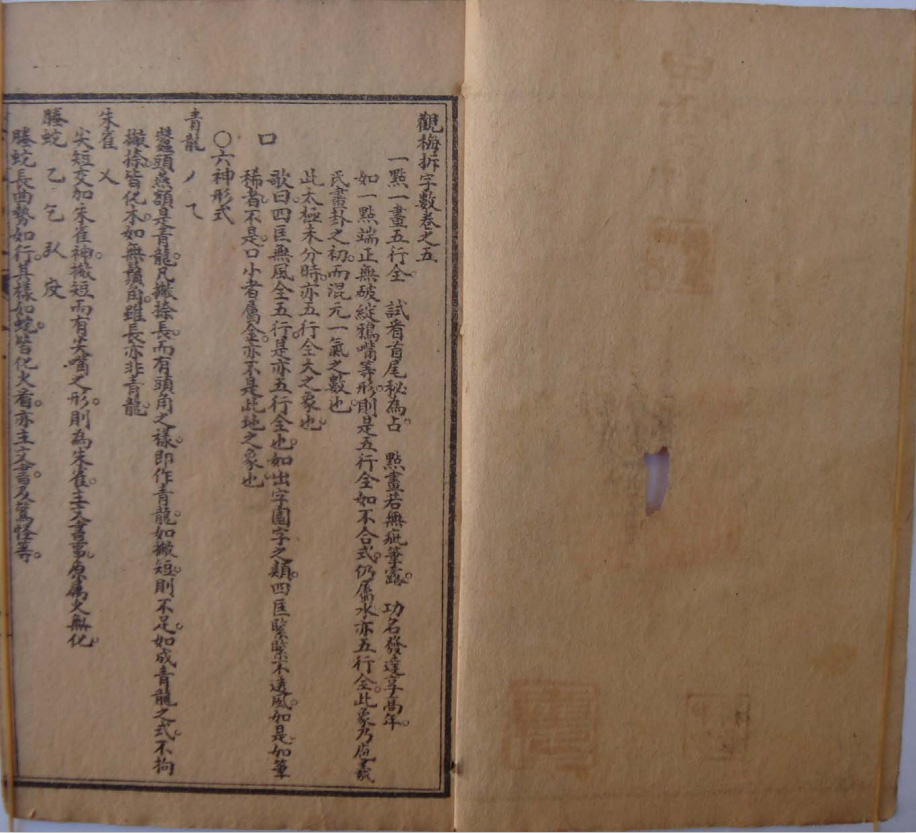 觀梅拆字數卷之五
一點一畫五行全　試看首尾秘為占　點畫若無疵筆露　功名發達享高年
如一點端正無破綻鴉嘴等形則是五行全如不合式仍屬水亦五行全此象乃庖羲
氏畫卦之初而混元一氣之數也
此太極未分時亦五行全大之象也
口　歌曰四匡無風全五行是亦五行全也如出字園字之類四匡緊緊不透風如是如筆
稀者不是口小者屬金亦不是此地之象也
○六神形式
青龍　丿　乀
蠶頭燕額是青龍凡撇捺長而有頭角之樣即作青龍如撇短則不足如成青龍之式不拘
撇捺皆化木如無鬚角雖長亦非青龍
朱雀　乂
尖短交加朱雀神撇短而有尖嘴之形則為朱雀主文書事原屬火無化
螣蛇　乙　乞
螣蛇長曲勢如行其樣如蛇皆化火看亦主文書及驚怪等